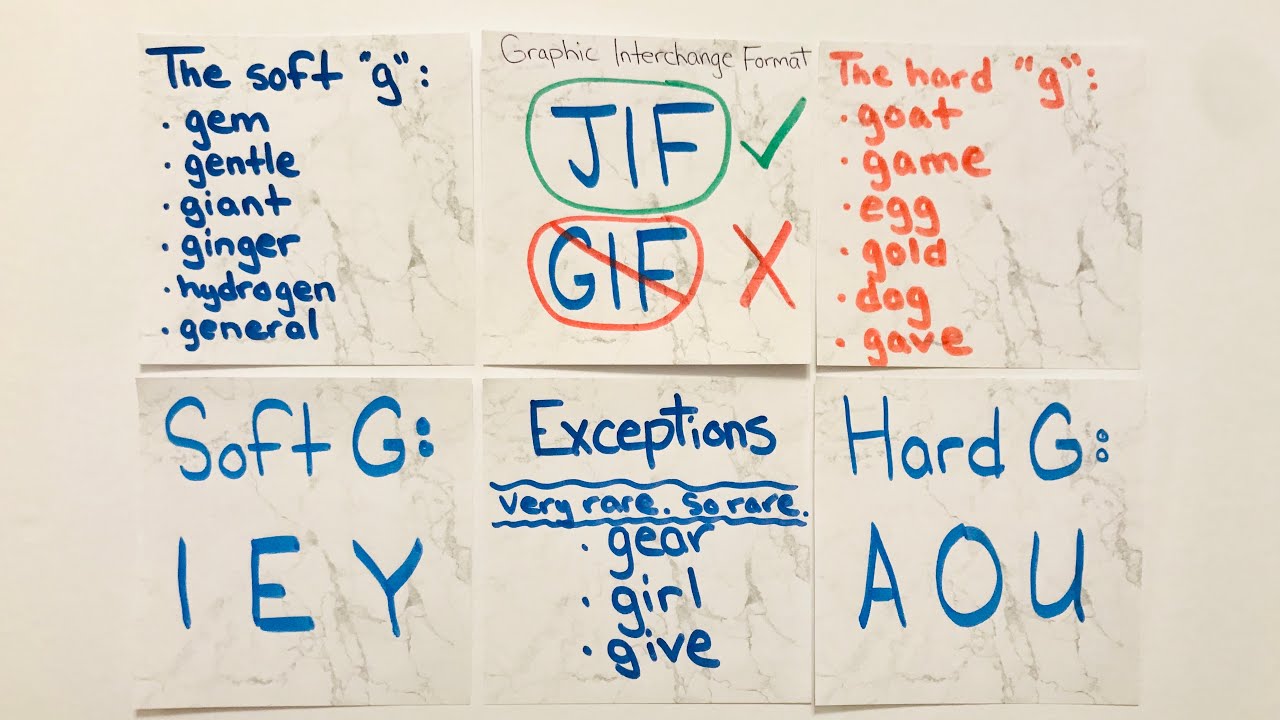 The soft "g":
· gem
· gentle
· giant
· ginger
· hydrogen
· general
Graphic Interchange Format
JIF ✓
GIF X
The hard "g":
· goat
· game
· egg
· gold
· dog
· gave
Soft G:
I E Y
Exceptions
very rare. So rare.
· gear
· girl
· give
Hard G:
A O U